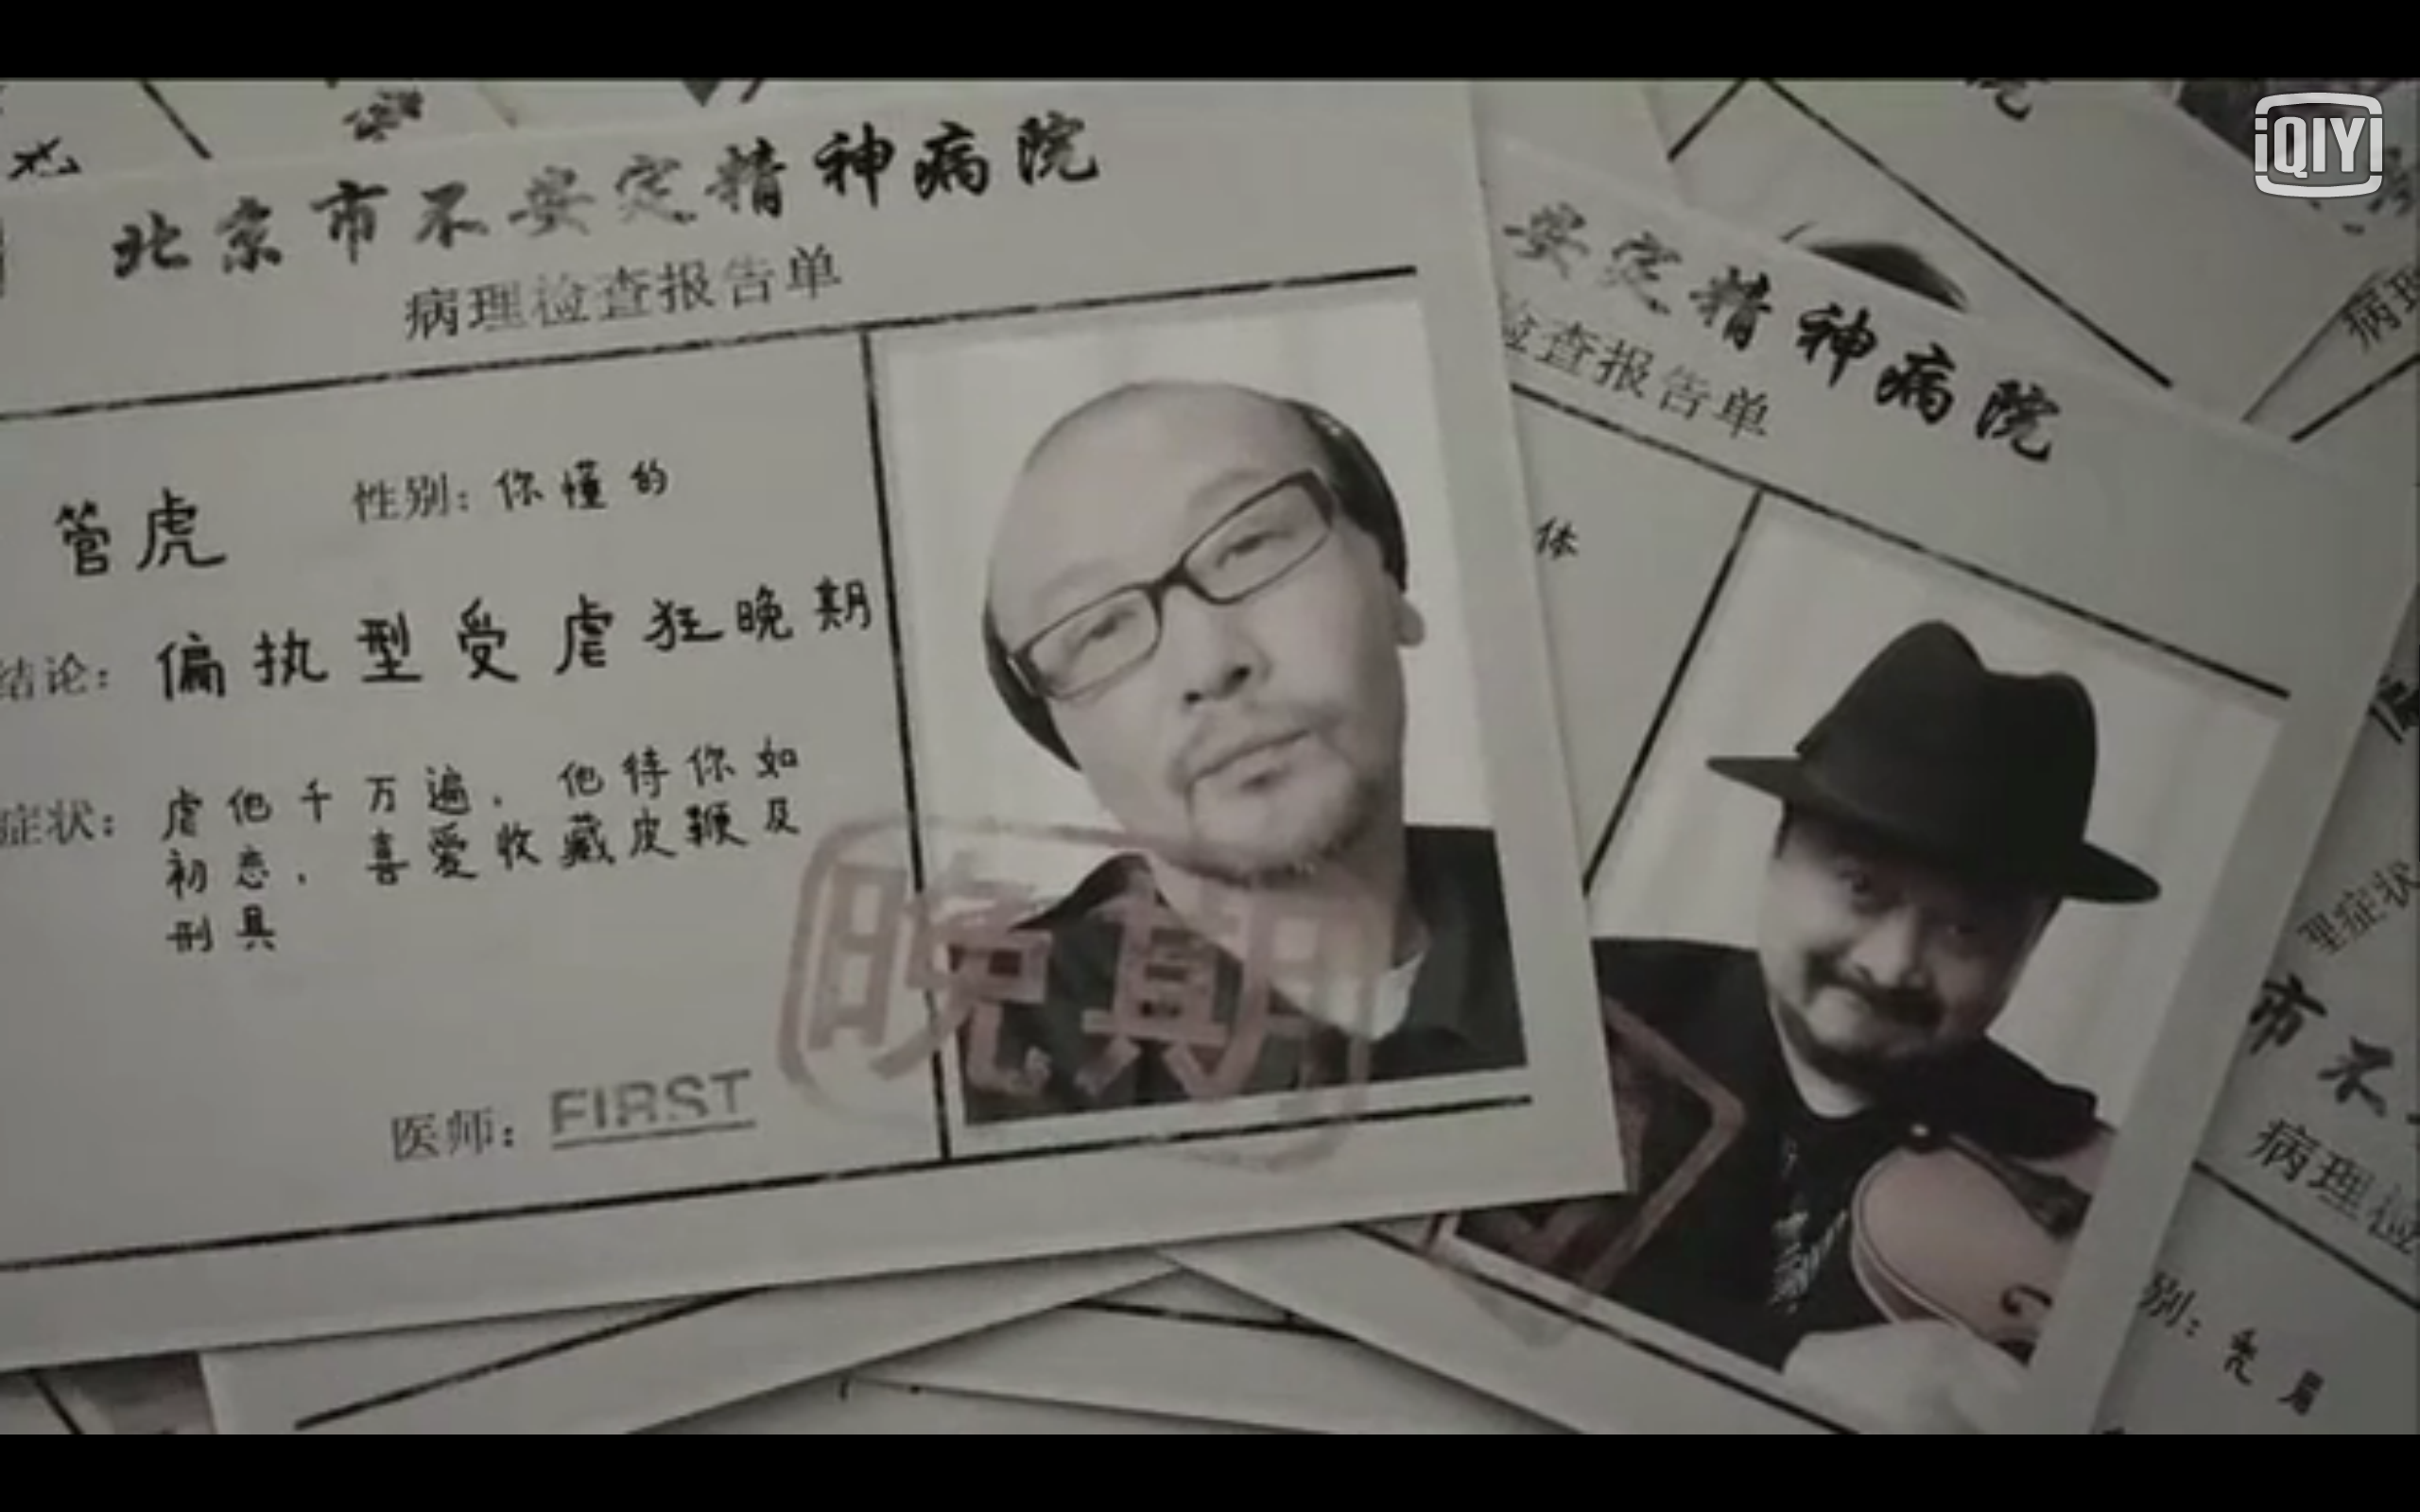 iQIYI
北京市不安定精神病院
病理检查报告单
管虎 性别：你懂的
结论：偏执型受虐狂晚期
症状：虐他千万遍，他待你如
初恋，喜爱收藏皮鞭及
刑具
晚期
医师：FIRST
安定精神病院
检查报告单
体
病理
理症状
市不
病理检
别：秃眉